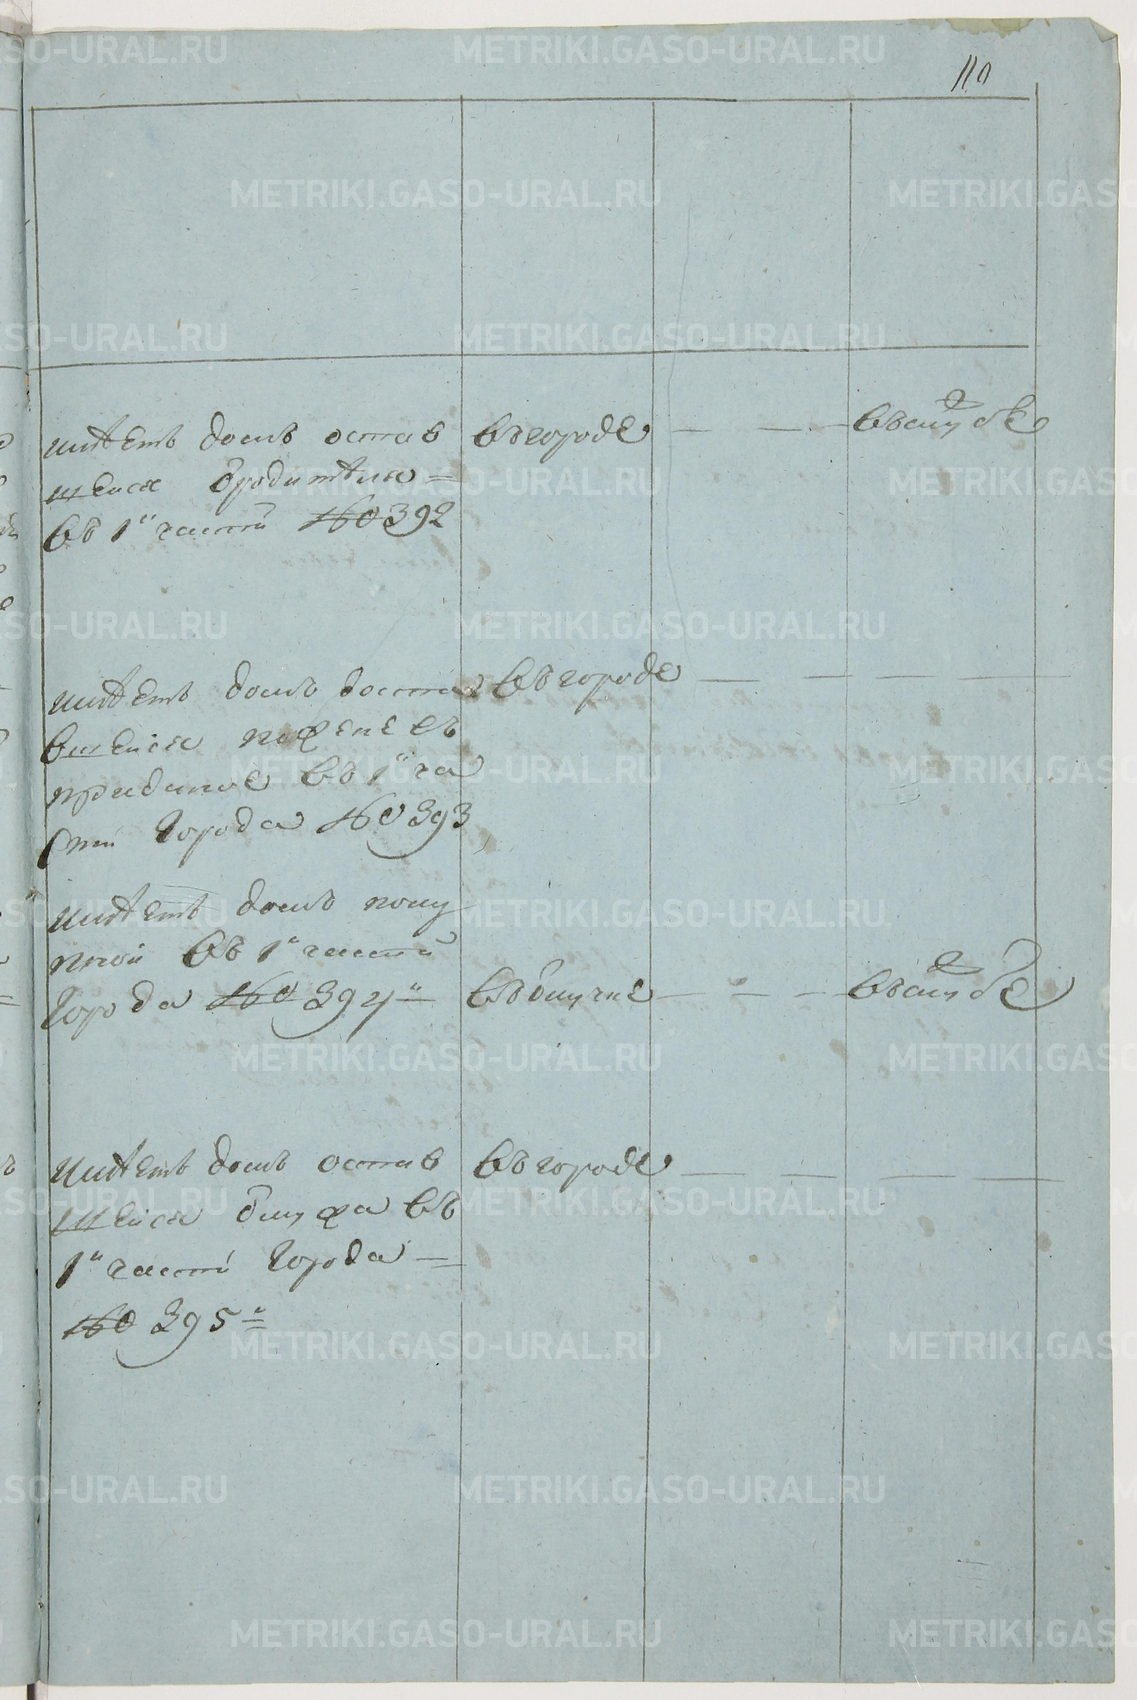 110
имѣетъ домъ остав
шейся ѿ родителя
въ 1й части № 392
въ городе
въ службе
имѣетъ домъ доста
вшейся по жене въ
приданое въ 1й ча
сти города № 393
въ городе
имѣетъ домъ поку
пной въ 1й части
города № 394й
въ службе
имѣетъ домъ остав
шейся ѿ мужа въ
1й части города
№ 395й
въ городе